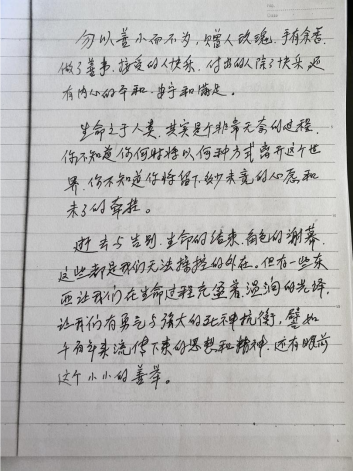 勿以善小而不为，赠人玫瑰，手有余香，
做了善事，接受的人快乐，付出的人除了快乐还
有内心的平和、安宁和满足。
生命之于人类，其实是个非常无奈的过程，
你不知道你何时将以何种方式离开这个世
界，你不知道你将留下多少未竟的心愿和
未了的牵挂。
逝去与告别，生命的结束，角色的谢幕，
这些都是我们无法操控的外在。但有一些东
西让我们在生命过程充盈着温润的光泽，
让我们有勇气与强大的死神抗衡，譬如
千百年来流传下来的思想和精神，还有眼前
这个小小的善举。